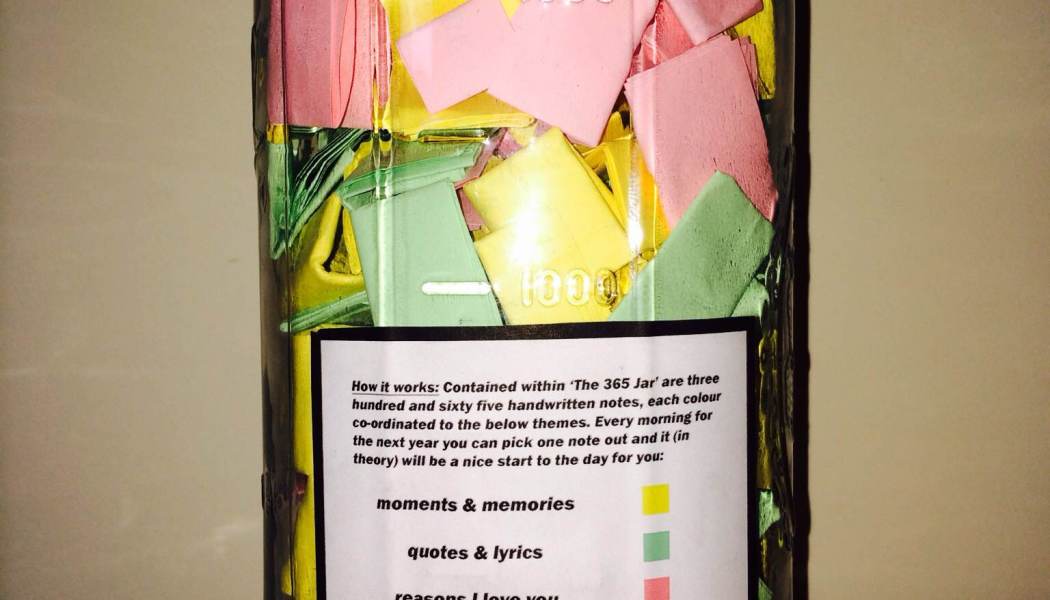 1000
How it works: Contained within ‘The 365 Jar’ are three
hundred and sixty five handwritten notes, each colour
co-ordinated to the below themes. Every morning for
the next year you can pick one note out and it (in
theory) will be a nice start to the day for you:
moments & memories
quotes & lyrics
reasons I love you